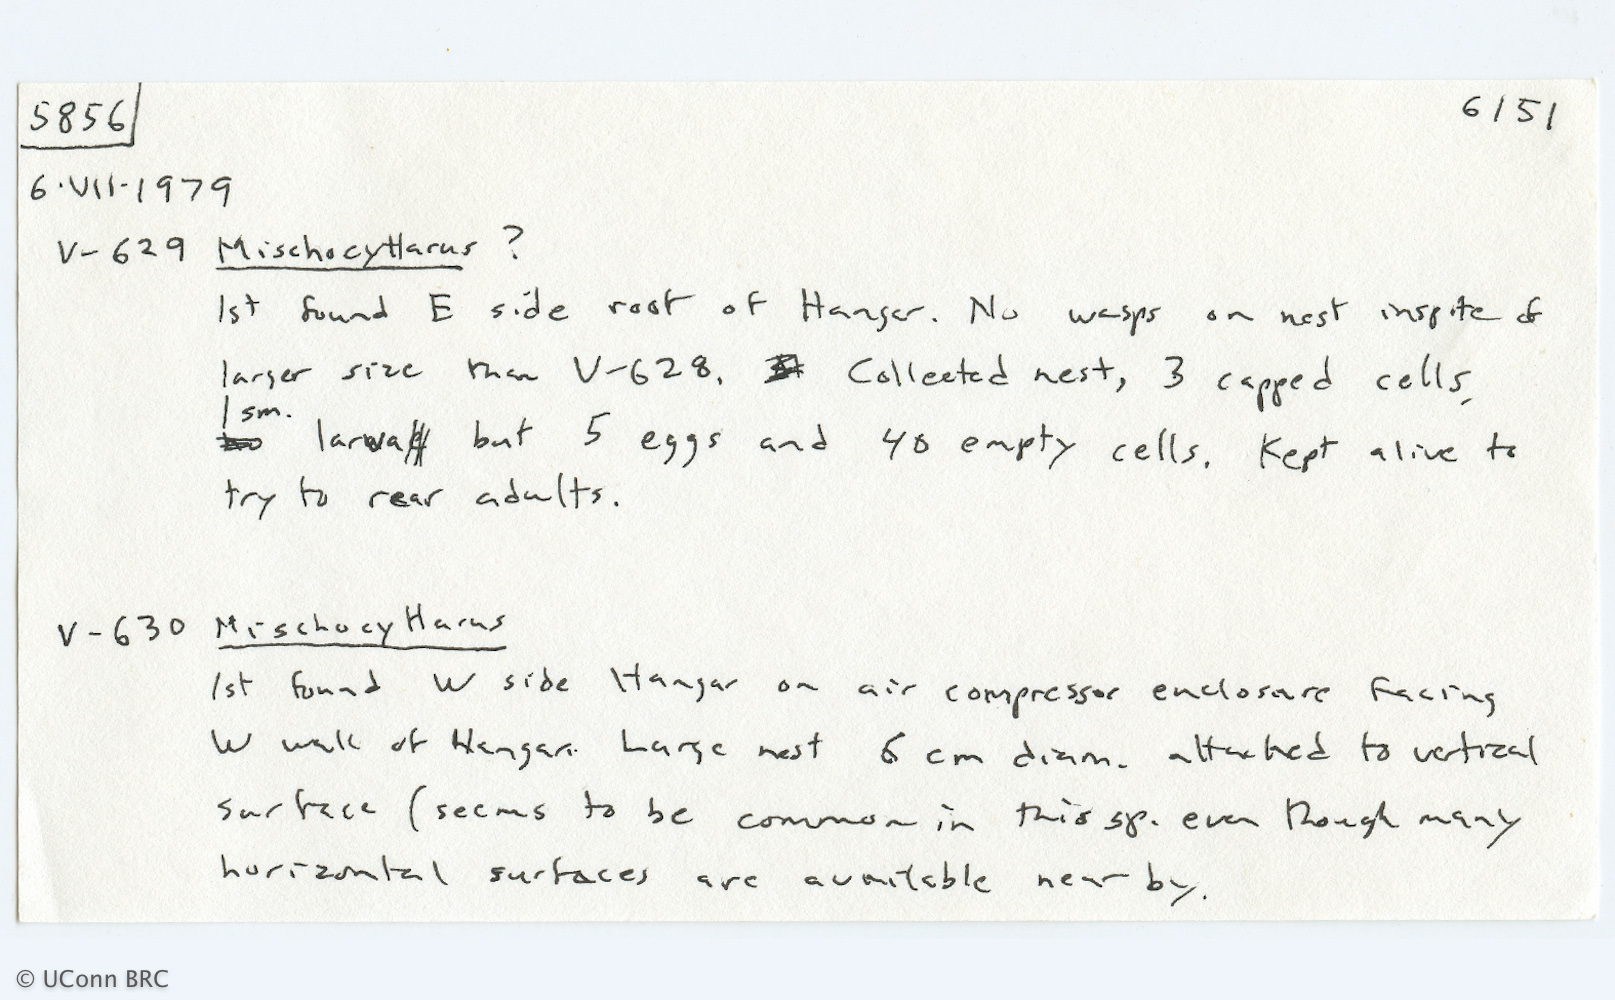 5856
6151
6·VII·1979
V-629 Mischocyttarus ?
1st found E side roof of Hangar. No wasps on nest inspite of
larger size than V-628. Collected nest, 3 capped cells,
1 sm.
larva but 5 eggs and 40 empty cells. Kept alive to
try to rear adults.
V-630 Mischocyttarus
1st found W side Hangar on air compressor enclosure facing
W wall of Hangar. Large nest 6 cm diam. attached to vertical
surface (seems to be common in this sp. even though many
horizontal surfaces are available near by.
© UConn BRC